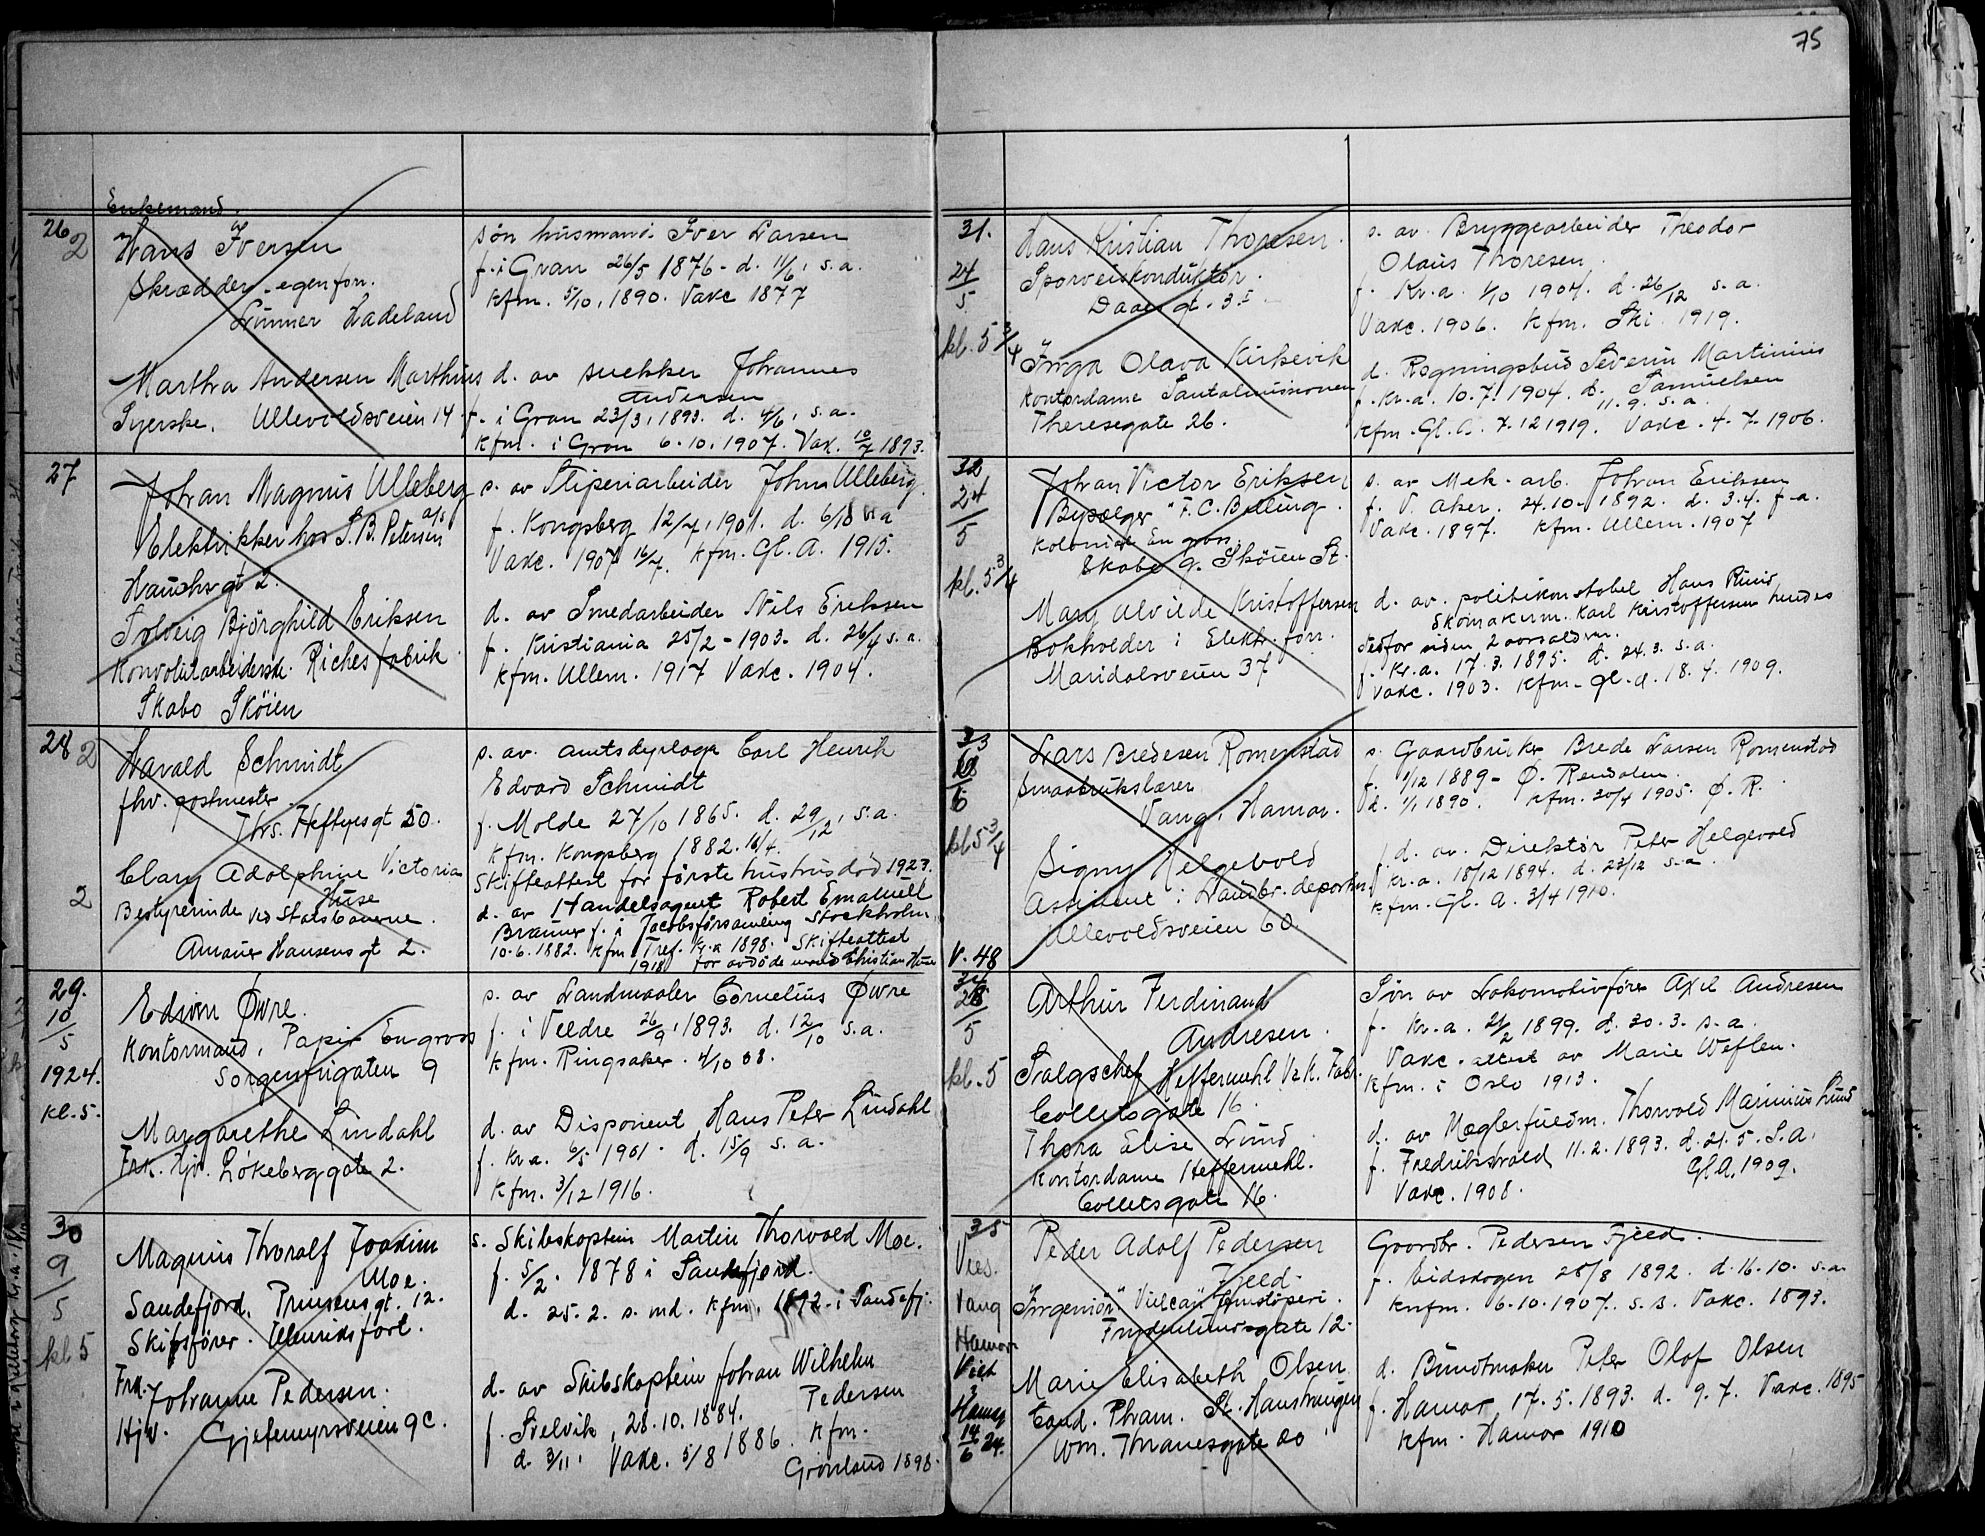 75
Enkemand.
26 2
Hans Iversen
Skrædder. egen forr.
Lunner Hadeland
søn husmand. Iver Larsen
f. i Gran 26/5 1876 - d. 11/6, s.a.
Kfm. 5/10, 1890. Vakc 1877
Martha Andersen Marthins
Syerske. Ullevoldsveien 14.
d. av snekker Johannes
Andersen
f. i Gran 23/3, 1893. d. 4/6, s.a.
Kfm. i Gran 6.10.1907. Vax. 10/7 1893.
27
Johan Magnus Ulleberg
Elektrikker hos S.B. Petersen a/s
Hauchs gt 2.
s. av Sliperiarbeider Johan Ulleberg.
f. Kongsberg 12/7, 1901. d. 6/10 s.a
Vakc. 1907 16/7. Kfm. Gl. A. 1915.
Solveig Bjørghild Eriksen
Konvoluttarbeiderske. Riches fabrik
Skabo Skøien
d. av Smedarbeider Nils Eriksen
f. Kristiania 25/2 - 1903. d. 26/4 s.a.
Kfm. Ullern. 1917 Vakc. 1904.
28 2
Harald Schmidt
fhv. postmester.
Ths. Heftyes gt 50.
s. av. amtsdyrlæge Carl Henrik
Edvard Schmidt
f. Molde 27/10 1865. d. 29/12, s.a.
Kfm. Kongsberg 1882. 16/4.
Skifteattest for første hustrus død 1923.
2
Clary Adolphine Victoria
Huse
Bestyrerinde ved Statsbanerne.
Amaur Hansens gt 2.
d. av Handelsagent Robert Emanuell
Brauner f. i Jacobsforsamling Stockholm
10.6.1882. Kfm Tref. Kr.a 1898. Skifteattest
1918 for avdøde mand Christian Huse
29.
10/5
1924.
Kl. 5.
Edvin Øvre.
Kontormand, Papir Engros
Sorgenfrigaten 9
s. av Landmaaler Cornelius Øvre
f. i Veldre 26/9, 1893. d. 12/10 s.a.
Kfm. Ringsaker. 4/10 08.
Margarethe Lindahl
Frk. Hjv. Løkeberggate 2.
d. av Disponent Hans Peter Lindahl
f. Kr.a. 6/5 1901. d. 15/9 s.a.
Kfm. 3/12 1916.
30
9/5
kl 5
Magnus Thoralf Joakim
Moe.
Sandefjord. Prinsens gt. 12.
Skibsfører. Utenriksfart.
s. Skibskaptein Martin Thorvald Moe.
f. 5/2. 1878 i Sandefjord.
d. 25.2. s. md. Kfm. 1892 i Sandefj.
Frk. Johanne Pedersen.
Hjv. Gjetemyrsveien 9c.
d. av Skibskaptein Johan Wilhelm
Pedersen
f. Svelvik, 28.10.1884.
d. 3/11, Vakc. 5/8 1886. Kfm.
Grønland 1898.
31.
24/5
kl. 5 3/4
Hans Kristian Thoresen.
Sporveiskonduktør.
Daaes gt. 35.
s. av. Bryggearbeider Theodor
Olaus Thoresen.
f. Kr.a. 1/10 1904. d. 26/12 s.a.
Vakc. 1906. Kfm. Ski. 1919.
Inga Olava Kirkevik
Kontordame Santalmissionen
Theresegate 26.
d. Regningsbud Severin Martinius
Samuelsen
f. Kr.a. 10.7.1904. d. 11.9. s.a.
Kfm. Gl. A. 7.12 1919. Vakc. 4.7.1906.
32
24/5
kl. 5 3/4
Johan Victor Eriksen
Bysælger "F.C. Belling.
Kolonial Engros.
Skabo g. Skøien St.
s. av Mek. arb. Johan Eriksen
f. V. Aker. 24.10.1892. d. 3.4. f.a.
Vakc. 1897. Kfm. Ullern. 1907
Mary Alvilde Kristoffersen
Bokholder i Elektr. forr.
Maridalsveien 37
d. av. politikonstabel Hans Ruud,
Skomakerm. Karl Kristoffersen hendes
stedfor siden 2 aarsalderen.
f. Kr.a. 17.3.1895. d. 24.3. s.a.
Vakc. 1903. Kfm. gl. a. 18.4.1909.
33
28/6
kl 5 3/4
V. 48
Lars Bredesen Romenstad
Smaabrukslærer
Vang, Hamar.
s. Gaardbruker Brede Larsen Romenstad
f. 1/12 1889 - Ø. Rendalen.
d. 1/1 1890. Kfm. 30/4 1905. Ø. R.
Signy Helgevold
Assistent i Landbr. departem.
Ullevoldsveien 60.
d. av. Direktør Peter Helgevold
f. Kr.a. 18/12 1894. d. 23/12 s.a.
Kfm. Gl. A. 3/4 1910.
34
28/5
kl. 5
Arthur Ferdinand
Andresen.
Salgschef Heffermehl V&K. Fabr.
Colletsgate 16.
Søn av Lokomotivfører Axel Andresen
f. Kr.a. 21/2 1899. d. 30.3. s.a.
Vakc. attest av Marie Weflen.
Kfm. i Oslo 1913.
Thora Elise Lund
Kontordame Heffermehl.
Colletsgate 16.
d. av Mæglerfuldm. Thorvald Marinius Lund
f. Fredrikshald 11.2.1893. d. 21.5. s.a.
Vakc. 1908. Gl.A. 1909.
35
Vies.
Vang
Hamar
Viet
i
Hamar
14/6 24.
Peder Adolf Pedersen
Fjeld.
Ingeniør "Vulcan" Jernstøperi.
Frydenlundsgate 12.
Gaardbr. Pedersen Fjeld.
f. Eidskogen 28/8 1892. d. 16.10. s.a.
Knfm. 6.10.1907. s.s. Vakc. 1893.
Marie Elisabeth Olsen
Cand. Pharm. St. Hanshaugen
Wm. Thranesgate 20
d. Buntmaker Peter Olof Olsen
f. Hamar 17.5.1893. d. 9.7. Vakc. 1895
Kfm. Hamar 1910